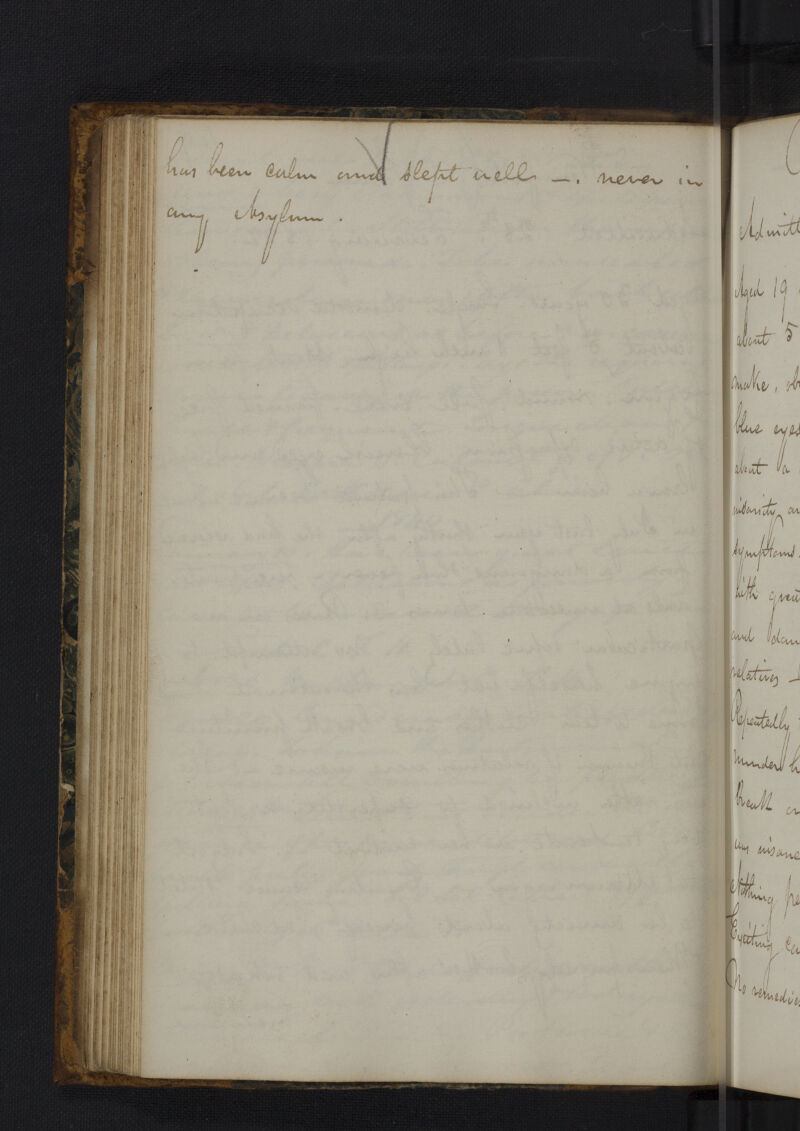 has been calm and slept well —. never in
any Asylum.
Admitt
Aged 19
about 5
make, ob
blue eyes
about a
insanity an
symptoms.
with great
and dan
relatives —
Repeatedly
murder h
breath on
was insane
Nothing pe
Exciting ca
No remedies